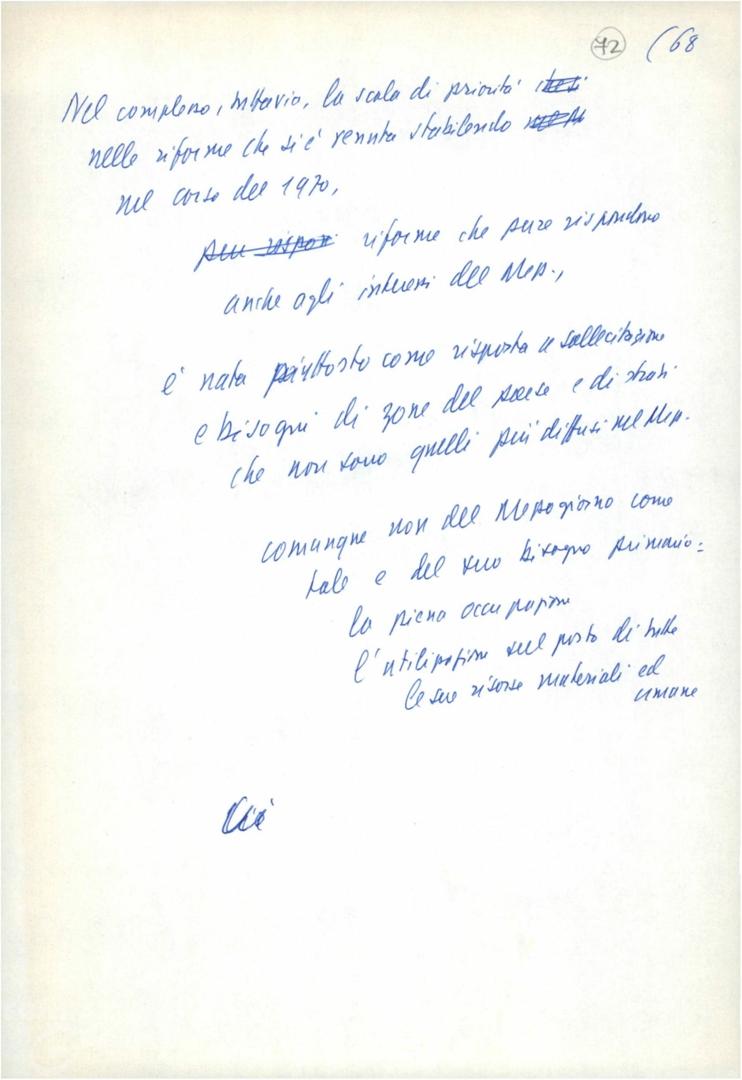 72 (68
Nel complesso, tuttavia, la scala di priorità
nelle riforme che si è venuta stabilendo
nel corso del 1970,
pur rispon riforme che pure rispondono
anche agli interessi del Mezz.,
è nata piuttosto come risposta a sollecitazione
e bisogni di zone del paese e di strati
che non sono quelli più diffusi nel Mezz.
comunque non del Mezzogiorno come
tale e del suo bisogno primario:
la piena occupazione
l'utilizzazione sul posto di tutte
le sue risorse materiali ed
umane
Ciò